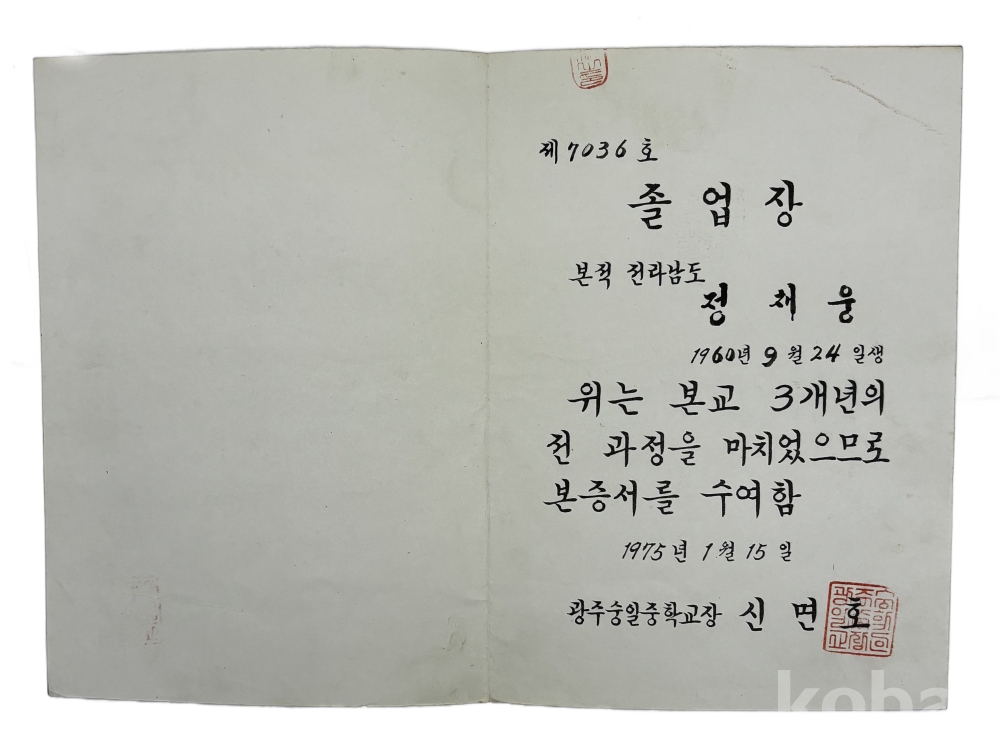 제 7036 호
졸업장
본적 전라남도
정재웅
1960년 9월 24일생
위는 본교 3개년의
전 과정을 마치었으므로
본증서를 수여함
1975년 1월 15일
광주숭일중학교장 신면호
koba